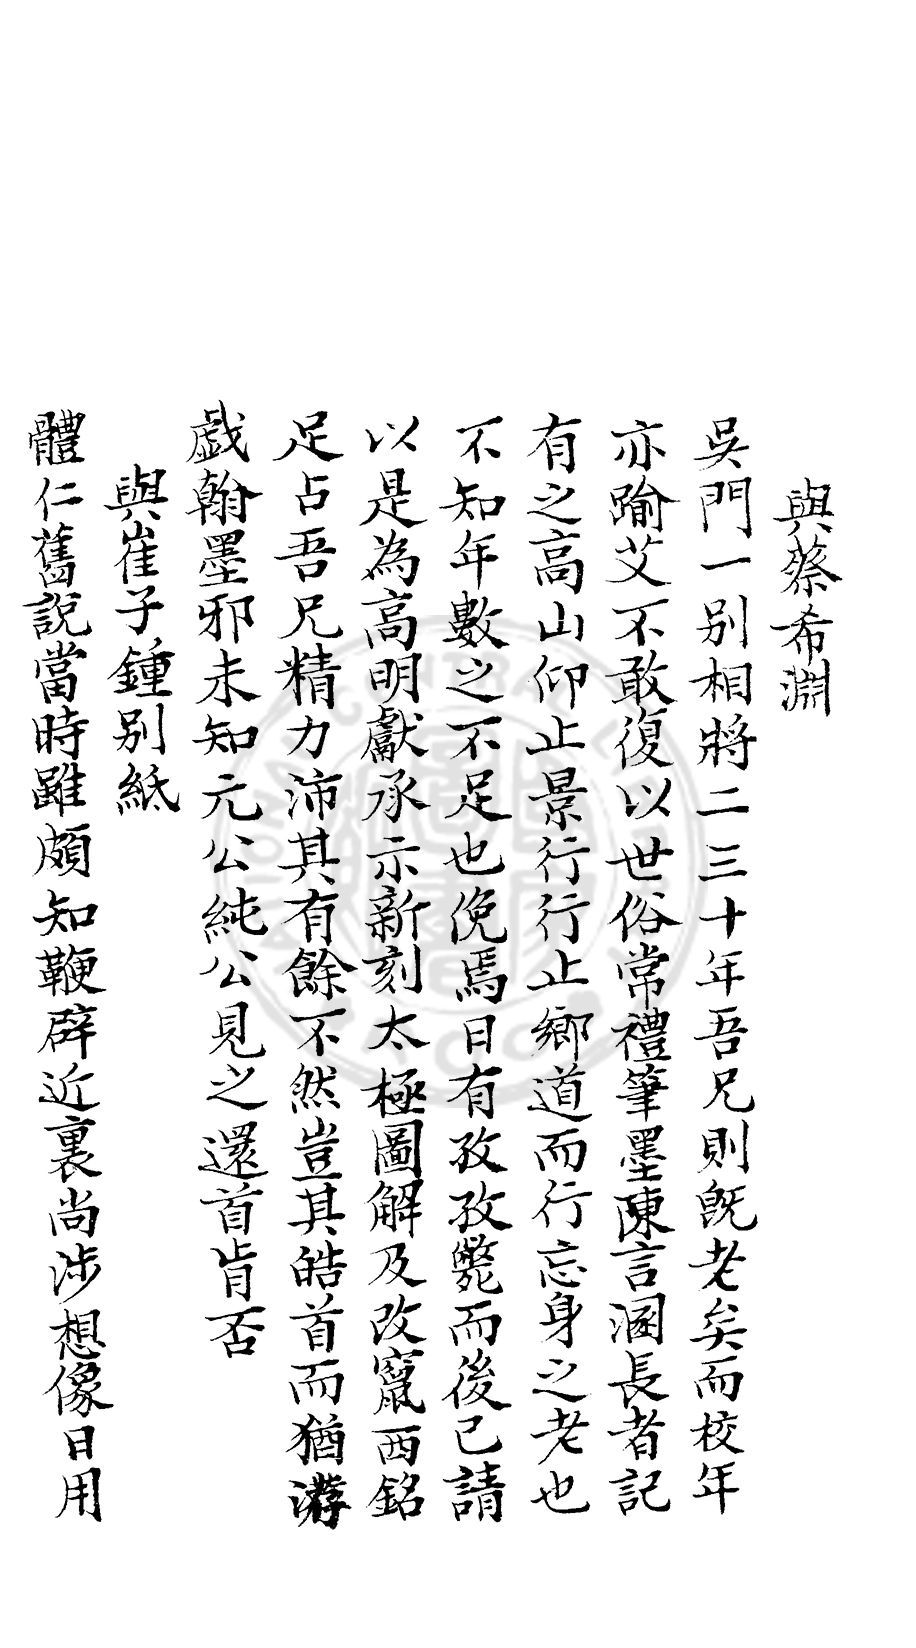 與蔡希淵
吳門一别相將二三十年吾兄則既老矣而校年
亦踰艾不敢復以世俗常禮筆墨陳言溷長者記
有之高山仰止景行行止鄉道而行忘身之老也
不知年數之不足也俛焉日有孜孜斃而後已請
以是為高明獻承示新刻太極圖解及改竄西銘
足占吾兄精力沛其有餘不然豈其皓首而猶游
戯翰墨邪未知元公純公見之還首肯否
與崔子鍾别紙
體仁舊說當時雖頗知鞭辟近裏尚涉想像日用